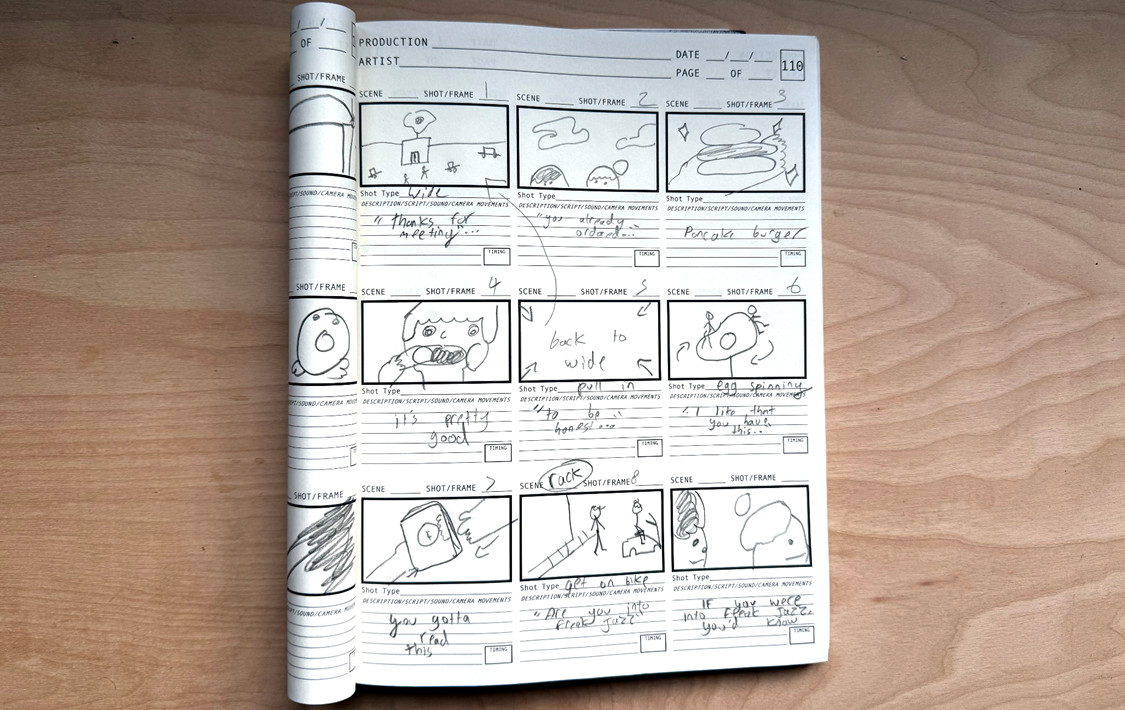 / /
OF
SHOT/FRAME
PRODUCTION
ARTIST
DATE / /
PAGE OF
110
SCENE SHOT/FRAME 1
SCENE SHOT/FRAME 2
SCENE SHOT/FRAME 3
Shot Type Wide
DESCRIPTION/SCRIPT/SOUND/CAMERA MOVEMENTS
"thanks for
meeting"...
TIMING
Shot Type
DESCRIPTION/SCRIPT/SOUND/CAMERA MOVEMENTS
"you already
TIMING
Shot Type
DESCRIPTION/SCRIPT/SOUND/CAMERA MOVEMENTS
Pancake burger
TIMING
SHOT/FRAME
SCENE SHOT/FRAME 4
SCENE SHOT/FRAME 5
SCENE SHOT/FRAME 6
back to
wide
Shot Type
DESCRIPTION/SCRIPT/SOUND/CAMERA MOVEMENTS
it's pretty
good
TIMING
Shot Type pull in
DESCRIPTION/SCRIPT/SOUND/CAMERA MOVEMENTS
"to be
honest...
TIMING
Shot Type egg spinning
DESCRIPTION/SCRIPT/SOUND/CAMERA MOVEMENTS
"I like that
you have
this..
TIMING
SHOT/FRAME
SCENE SHOT/FRAME 7
SCENE rack SHOT/FRAME 8
SCENE SHOT/FRAME
Shot Type
DESCRIPTION/SCRIPT/SOUND/CAMERA MOVEMENTS
you gotta
read
this
TIMING
Shot Type get on bike
DESCRIPTION/SCRIPT/SOUND/CAMERA MOVEMENTS
"Are you into
freak jazz"
TIMING
Shot Type
DESCRIPTION/SCRIPT/SOUND/CAMERA MOVEMENTS
If you were
into freak jazz
you'd know
TIMING